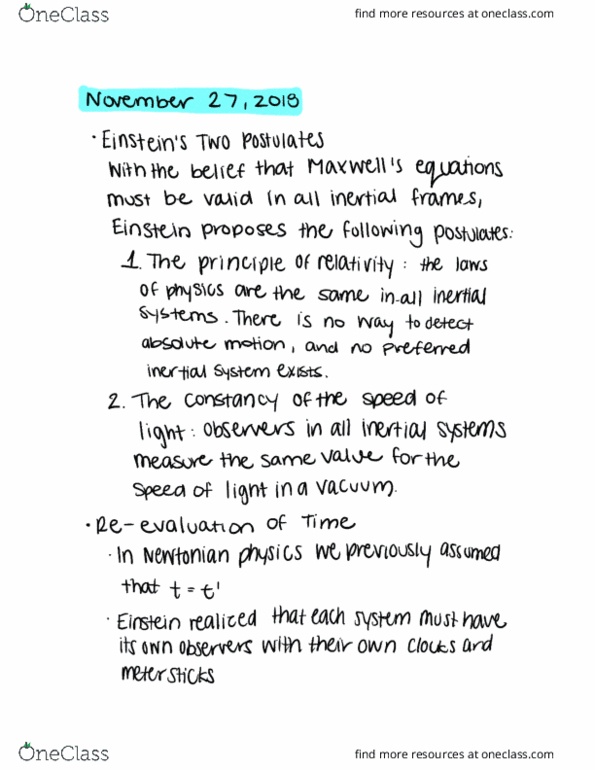 OneClass
find more resources at oneclass.com
November 27, 2018
· Einstein's Two Postulates
With the belief that Maxwell's equations
must be valid in all inertial frames,
Einstein proposes the following postulates:
1. The principle of relativity: the laws
of physics are the same in all inertial
systems. There is no way to detect
absolute motion, and no preferred
inertial system exists.
2. The constancy of the speed of
light: observers in all inertial systems
measure the same value for the
speed of light in a vacuum.
· Re-evaluation of Time
· In Newtonian physics we previously assumed
that t = t'
· Einstein realiced that each system must have
its own observers with their own clocks and
meter sticks
OneClass
find more resources at oneclass.com